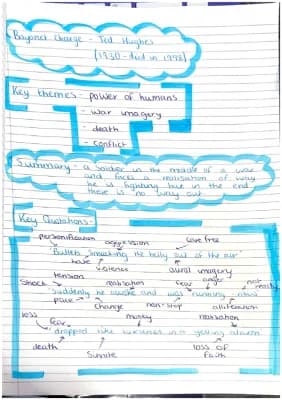 Bayonet Charge - Ted Hughes
(1930 - died in 1998)
Key themes - power of humans
- war imagery
- death
- conflict
Summary - a soldier in the middle of a war
and faces a realisation of why
he is fighting but in the end
there is no way out
Key Quotations -
personification aggression care free
"Bullets smacking the belly out of the air"
hate violence aural imagery
tension anger
Shock realisation fear not ready
"Suddenly he awoke and was running
pace change non-stop alliteration
loss fear money realisation
"dropped like luxuries in a yelling alarm"
death simile loss of
faith